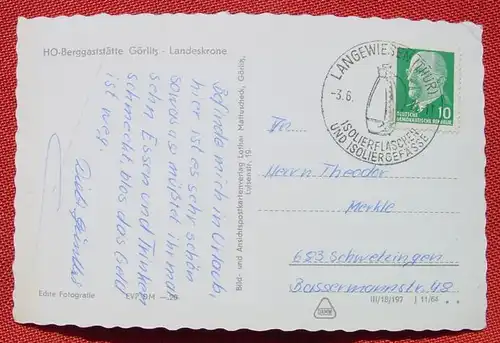 HO-Berggaststätte Görlitz - Landeskrone
Befinde mich in Urlaub,
hier ist es sehr schön
sowas müßtet ihr mal
sehn Essen und Trinken
schmeckt, blos das Geld
ist weg.
Echte Fotografie
EVP DM
Bild- und Ansichtskartenverlag Lothar Mattuscheck, Görlitz,
Luisenstr. 19
LANGEWIESEN (THÜR)
-3.6.
ISOLIERFLASCHEN
UND ISOLIERGEFÄSSE
DEUTSCHE
DEMOKRATISCHE REPUBLIK
10
An
Herrn Theodor
Merkle
683 Schwetzingen
Bassermannstr. 48
III/18/197 J 11/64